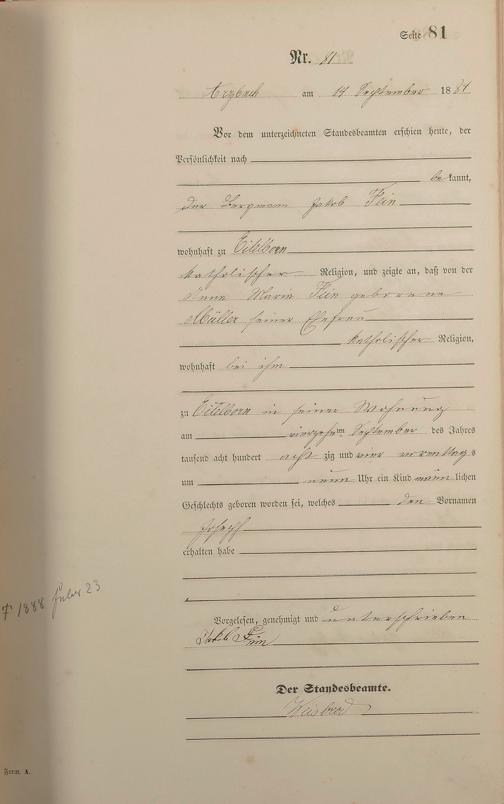 Seite 81
Nr. 81
Arzbach am 14 September 1881
Vor dem unterzeichneten Standesbeamten erschien heute, der
Persönlichkeit nach
be kannt,
der Bergmann Jakob
wohnhaft zu Eitelborn
katholischer Religion, und zeigte an, daß von der
Anna Maria geborene
Müller seiner Ehefrau
katholischer Religion,
wohnhaft bei ihm
zu Eitelborn in seiner Wohnung
am vierzehn ten September des Jahres
tausend acht hundert acht zig und vormittags
um neun Uhr ein Kind männ lichen
Geschlechts geboren worden sei, welches den Vornamen
Joseph
erhalten habe
† 1888 23
Vorgelesen, genehmigt und unterschrieben
Jakob
Der Standesbeamte.
Form. A.